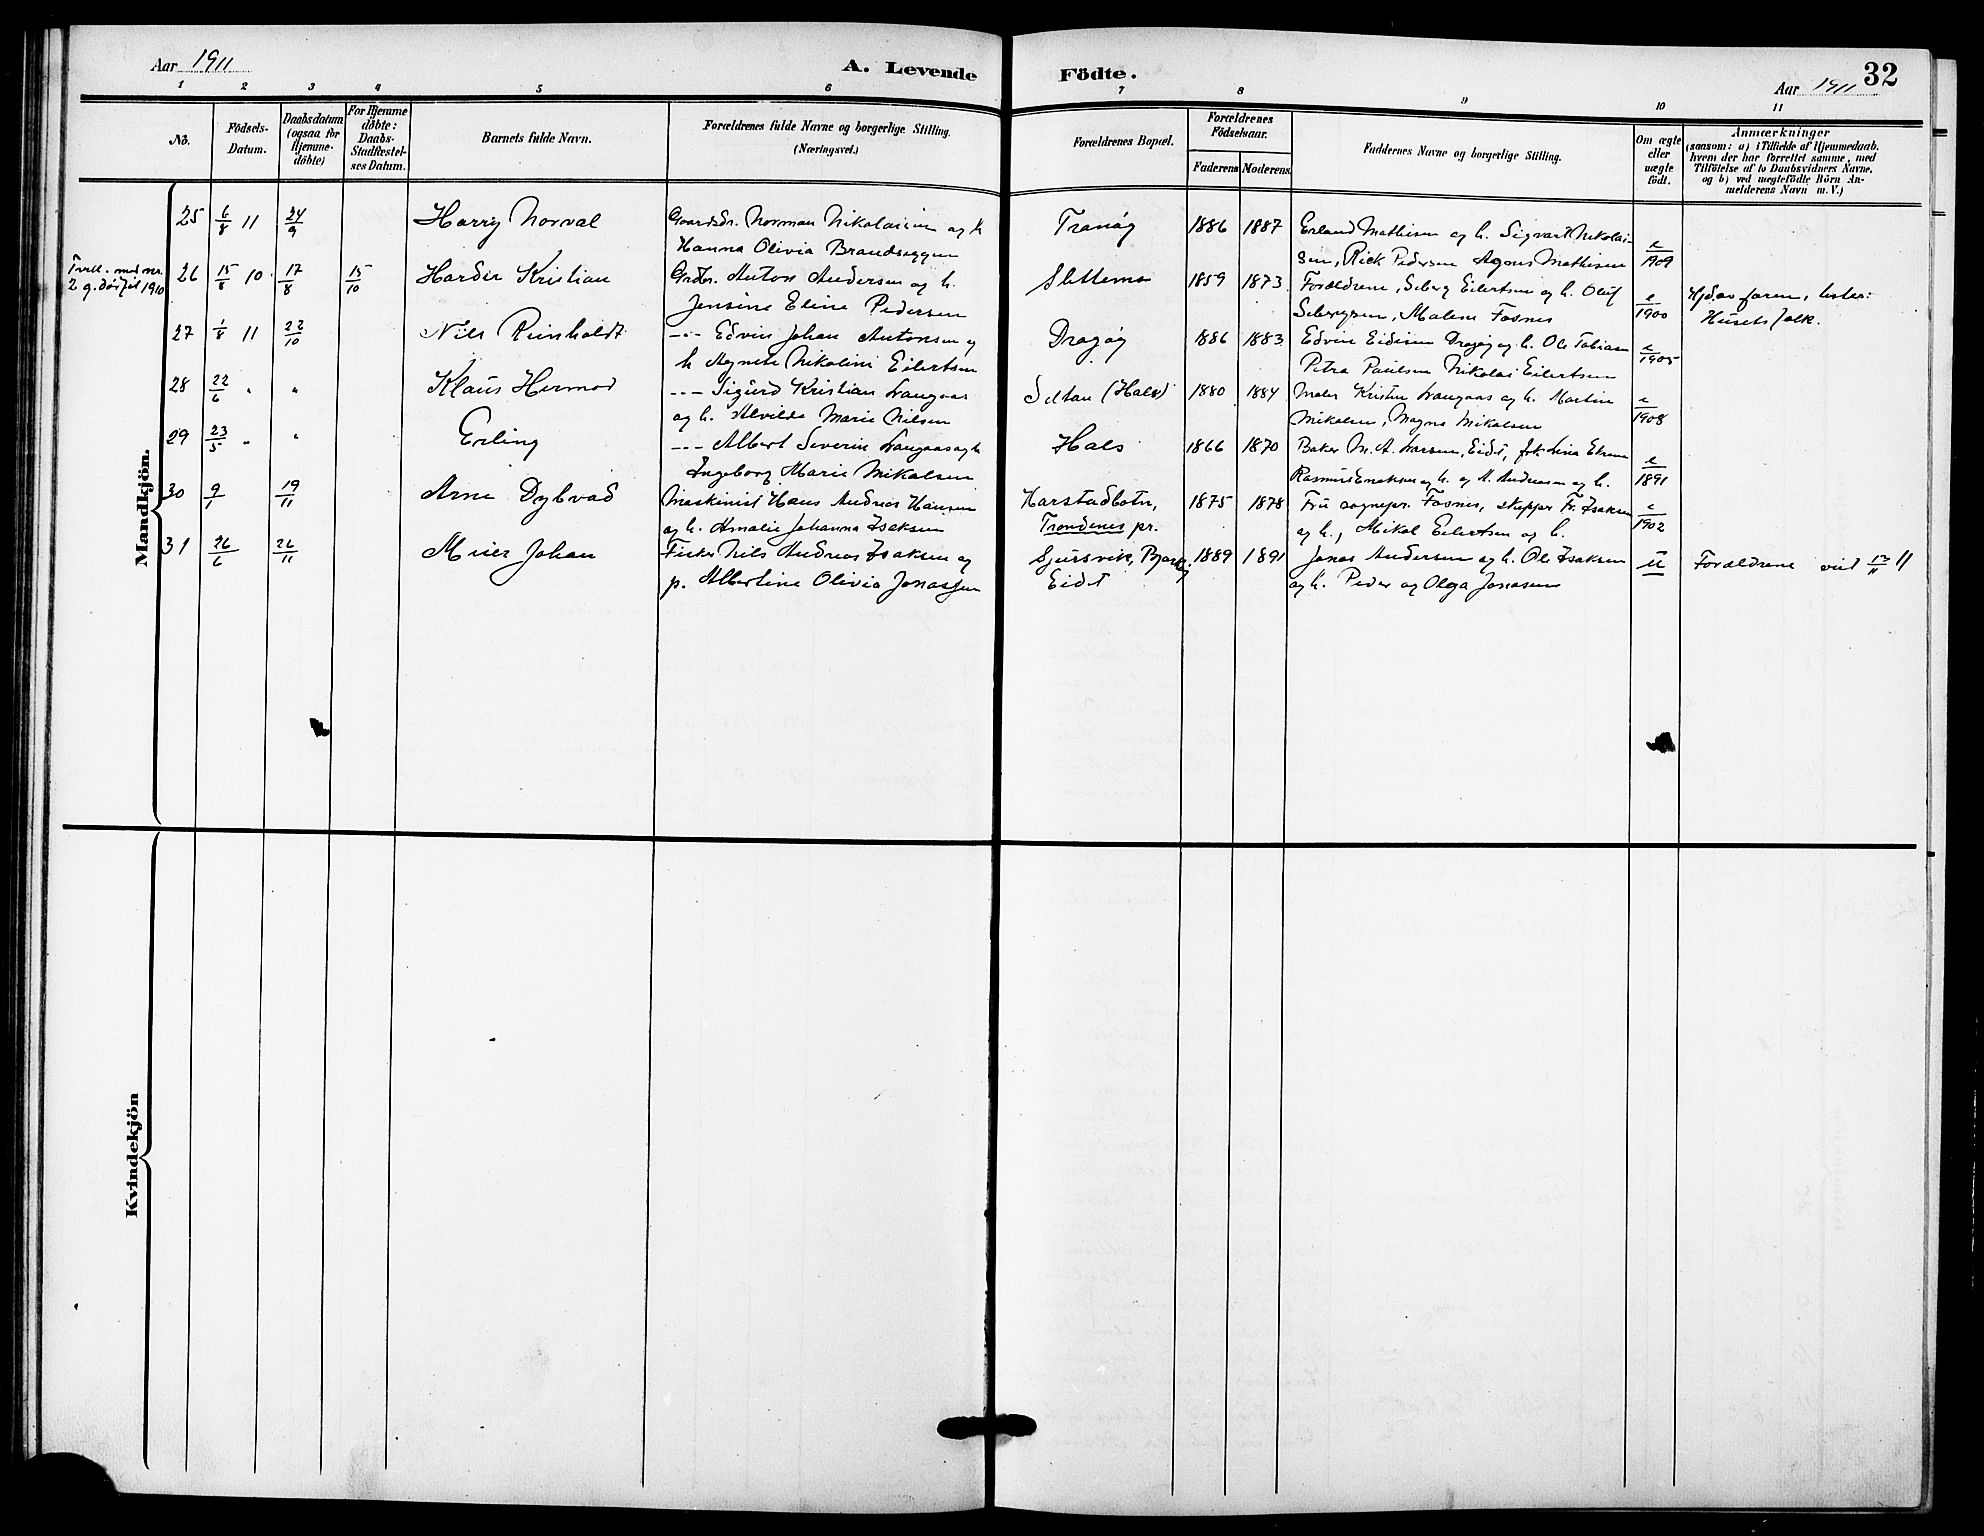 Aar 1911
A. Levende
Födte.
Aar 1911
32
1 2 3 4 5 6 7 8 9 10 11
No.
Födsels-
Datum.
Daabsdatum
(ogsaa for
Hjemme-
döbte)
For Hjemme
döbte:
Daabs-
Stadfæstel-
ses Datum.
Barnets fulde Navn.
Forældrenes fulde Navne og borgerlige Stilling.
(Næringsvei.)
Forældrenes Bopæl.
Forældrenes
Födselsaar.
Faderens
Moderens
Faddernes Navne og borgerlige Stilling.
Om ægte
eller
uægte
födt.
Anmærkninger
(saasom: a) i Tilfælde af Hjemmedaab.
hvem der har forrettet samme, med
Tilföielse af to Daabsvidners Navne.
og b) ved uægtefödte Börn An-
melderens Navn m. V.)
Mandkjön.
25 6/8 11 24/9 Harry Norval Gaardbr. Norman Nikolaisen og h Tranøy 1886 1887 Erland Mathisen og h. Sigvart Nikolai-
Hanna Olivia Brandseggen sen, Rick Pedersen Agnes Mathisen e/1909
Tvill. med nr.
2 g. dør 1910
26 15/8 10 17/8 15/10 Harder Kristian Grdbr. Anton Andersen og h. Slettemo 1859 1873 Forældrene, Seberg Eilertsen og h. Oluf
Jensine Eline Pedersen Malene Fosnes e/1900 Hjd av faren,
Husets folk.
27 1/8 11 22/10 Nils Reinholdt -"- Edvin Johan Antonsen og Dragøy 1886 1883 Edvin Eidisen Dragøy og h. Ole Tobias
h Agnete Nikoline Eilertsen Petra Paulsen Nikolai Eilertsen e/1905
28 22/6 " " Klaus Hermod -"- Sigurd Kristian Langaas Seltan (Hals) 1880 1884 Maler Kristen Langaas og h. Martin
og h. Alvilde Marie Nilsen Mikalsen, Magna Mikalsen e/1908
29 23/5 " " Erling -"- Albert Severin Langaas og h Hals 1866 1870 Baker M. A. Larsen, Eidet, frk. Lina
Ingeborg Marie Mikalsen Rasmus og h. og A. Andersen og h. e/1891
30 9/1 19/11 Arne Dybvad Maskinist Hans Andreas Hansen Harstadbotn, 1875 1878 Fru sognepr. Fosnes, skipper Fr. Isaksen
og h. Amalie Johanna Isaksen Trondenes pr. og h., Mikal Eilertsen og h. e/1902
31 26/6 26/11 Meier Johan Fisker Nils Andreas Isaksen og Sjursvik, Bjarkøy 1889 1891 Jonas Andersen og h. Ole Isaksen u Forældrene viet 12/11 11
p. Albertine Olivia Jonassen Eidet og h. Peder og Olga Jonassen
Kvindekjön